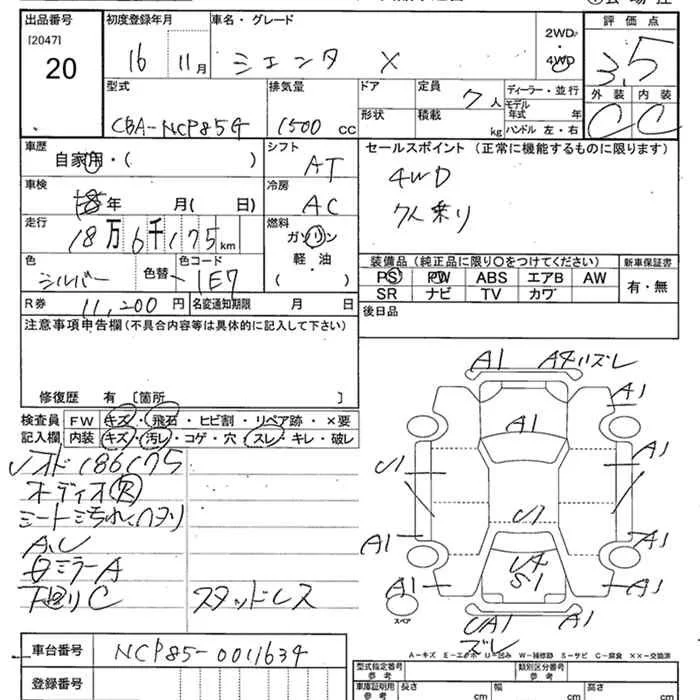 出品番号 初度登録年月 車名・グレード 評価点
[2047] 20 16 11月 シエンタ X 2WD・4WD 3.5
型式 排気量 ドア 定員 ディーラー・並行 外装 内装
CBA-NCP85G 1500 CC 形状 積載 7人 kg モデル年式 年 ハンドル 左・右 C C
車歴 シフト セールスポイント (正常に機能するものに限ります)
自家用・( ) AT 4WD
車検 年 月( 日) 冷房 AC 7人乗り
走行 18万6千175km 燃料 ガソリン
軽・油
( )
色 シルバー 色替 色コード 1E7
装備品 (純正品に限り○をつけてください) 新車保証書
PS PW ABS エアB AW 有・無
SR ナビ TV カワ
R券 11,200円 名変通知期限 月 日 後日品
注意事項申告欄 (不具合内容等は具体的に記入して下さい)
修復歴 有 [箇所 ]
検査員 FW キズ・飛石・ヒビ割・リペア跡・×要
記入欄 内装 キズ・汚レ・コゲ・穴・スレ・キレ・破レ
186175
オーディオ欠
シート汚れ
ミラーA
下回りC スタッドレス
A1 A4 ズレ
A1 A1
U1 A1
U1
A1 A1
U4
S1
A1 A1
UA1 A1
ズレ
スペア
A-キズ E-エクボ U-凹み W-補修跡 S-サビ C-腐食 ××-交換済
車台番号 NCP85-0011634
登録番号
型式指定番号 参考 類別区分番号 参考
車庫証明用 参考 長さ cm 幅 cm 高さ cm